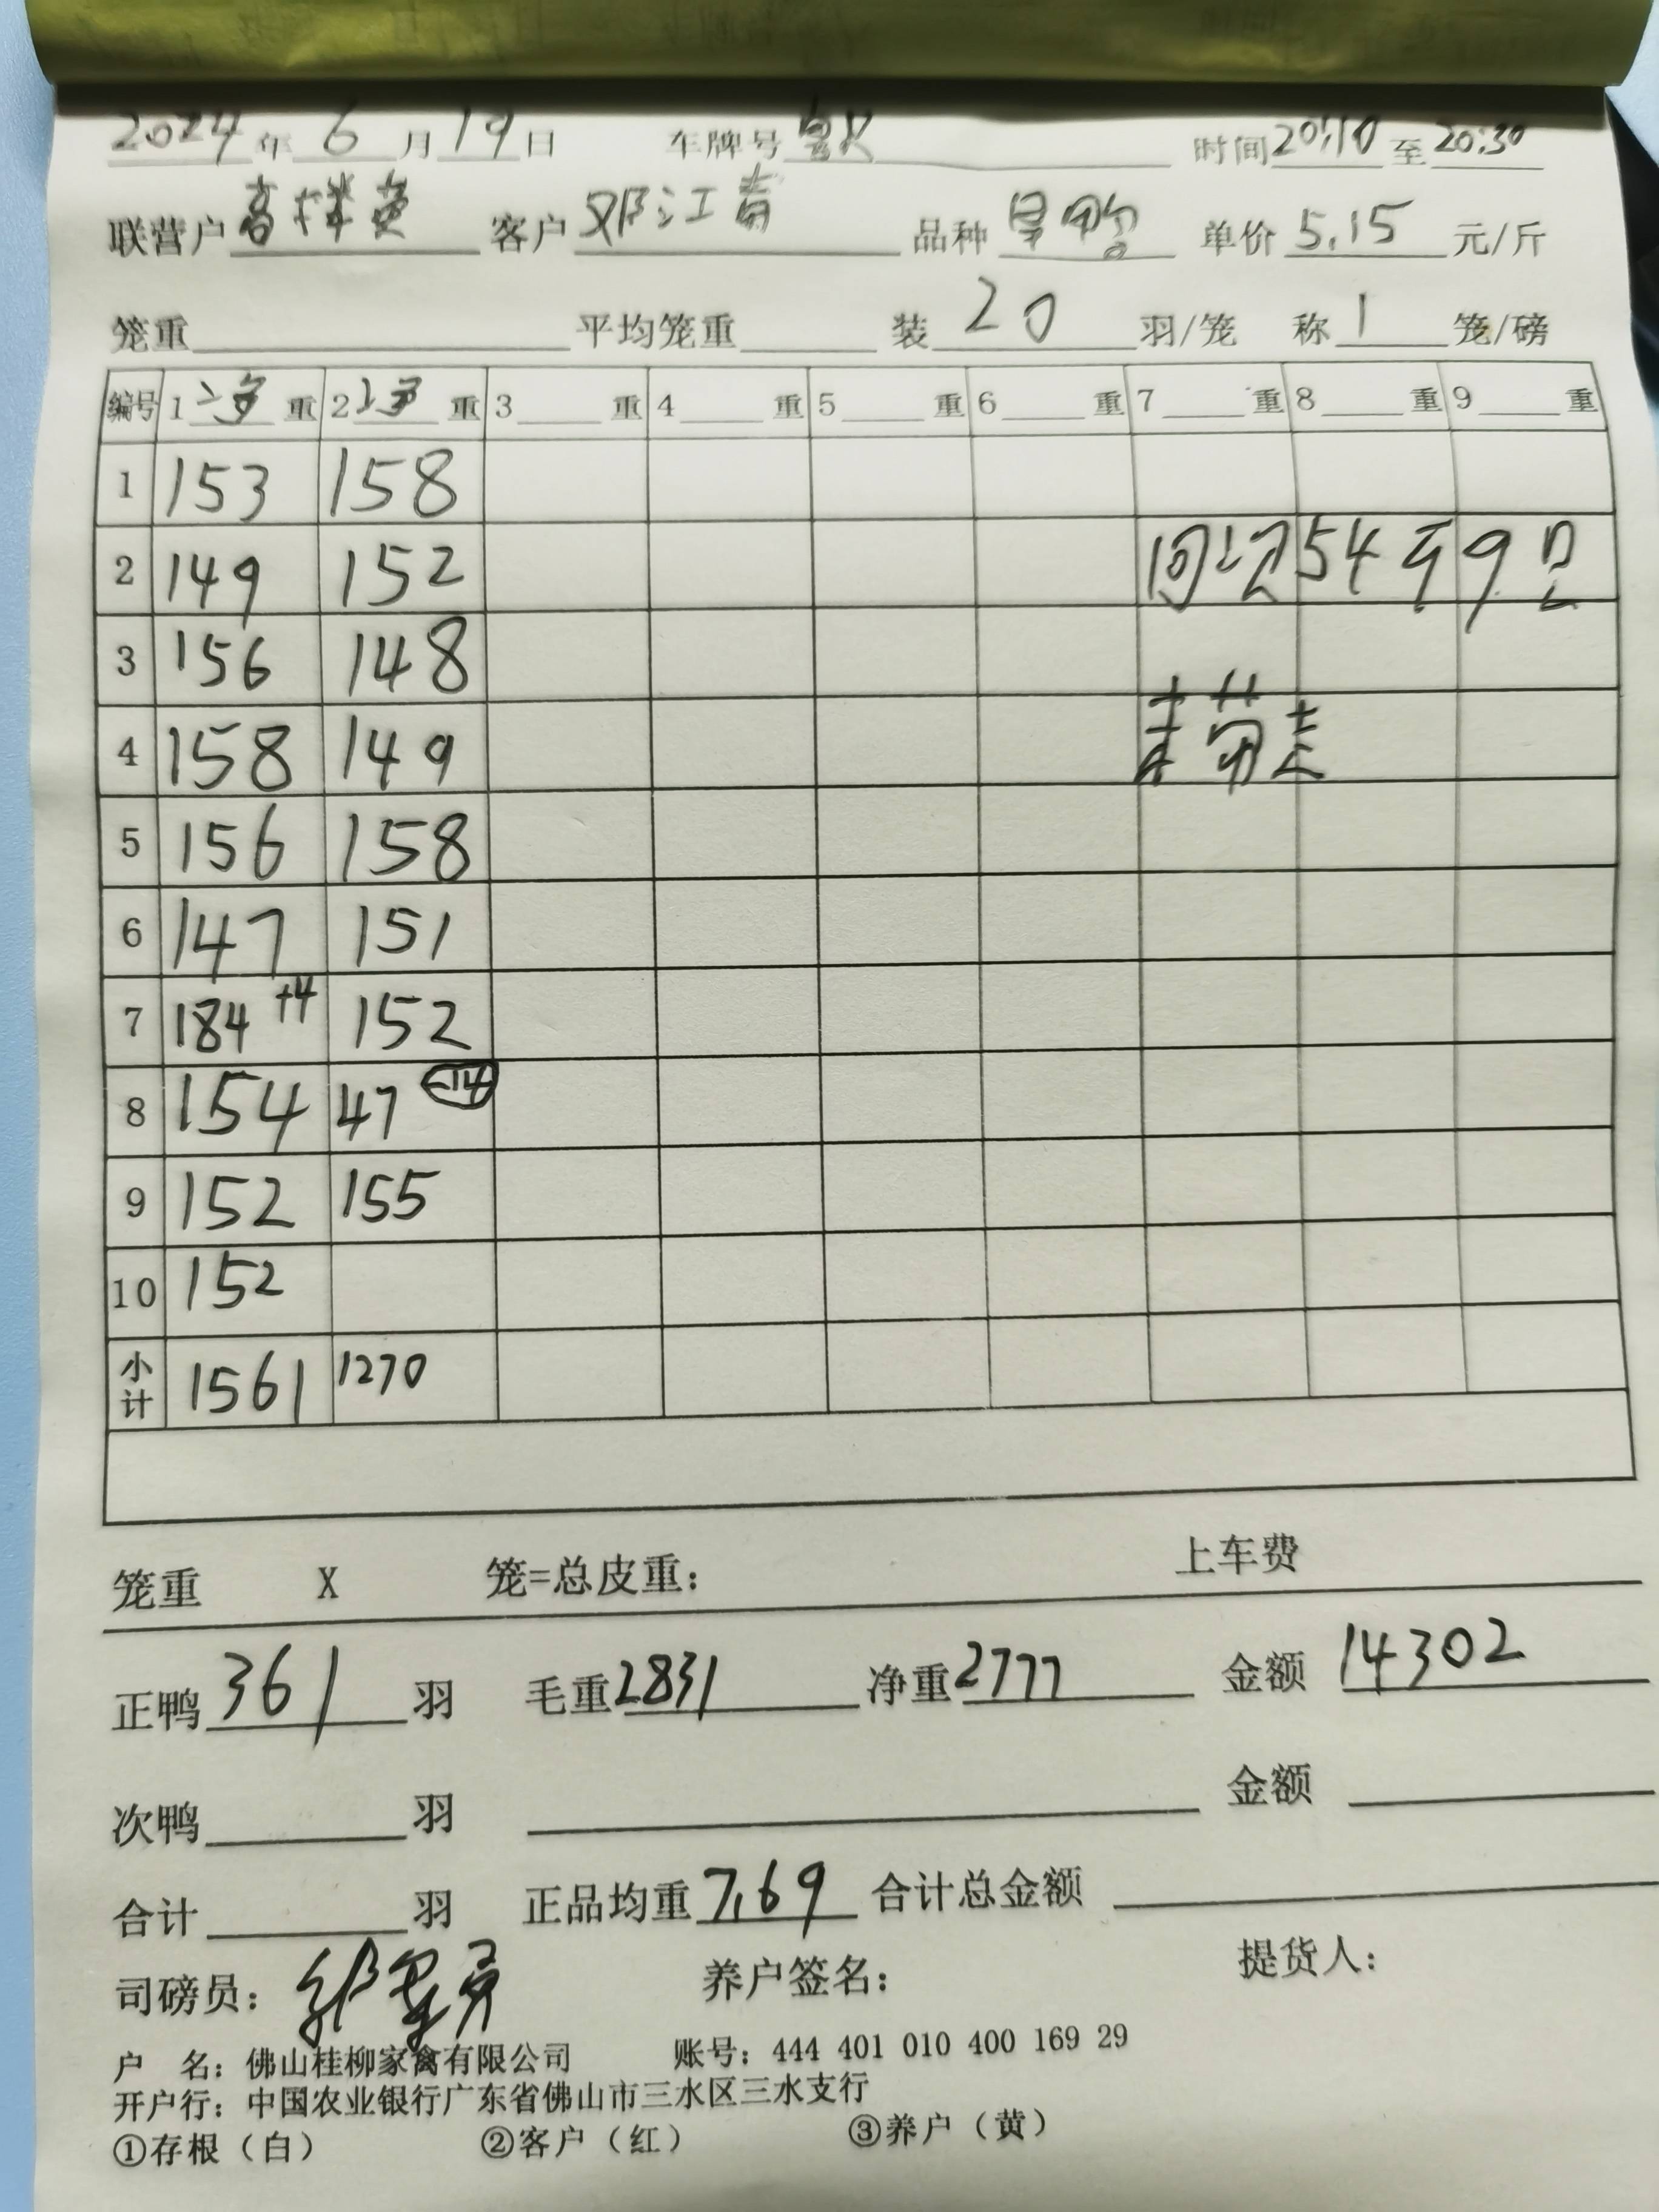 2024年6月19日 车牌号 时间20:10至20:30
联营户 客户邓江青 品种 单价5.15元/斤
笼重 平均笼重 装20羽/笼 称1笼/磅
编号 1净重 2净重 3重 4重 5重 6重 7重 8重 9重
1 153 158
2 149 152 54斤9只
3 156 148
4 158 149
5 156 158
6 147 151
7 184 +4 152
8 154 47 -14
9 152 155
10 152
小计 1561 1270
笼重 X 笼=总皮重： 上车费
正鸭361羽 毛重2831 净重2777 金额14302
次鸭 羽 金额
合计 羽 正品均重7.69 合计总金额
司磅员： 养户签名： 提货人：
户 名：佛山桂柳家禽有限公司 账号：444 401 010 400 169 29
开户行：中国农业银行广东省佛山市三水区三水支行
①存根（白） ②客户（红） ③养户（黄）